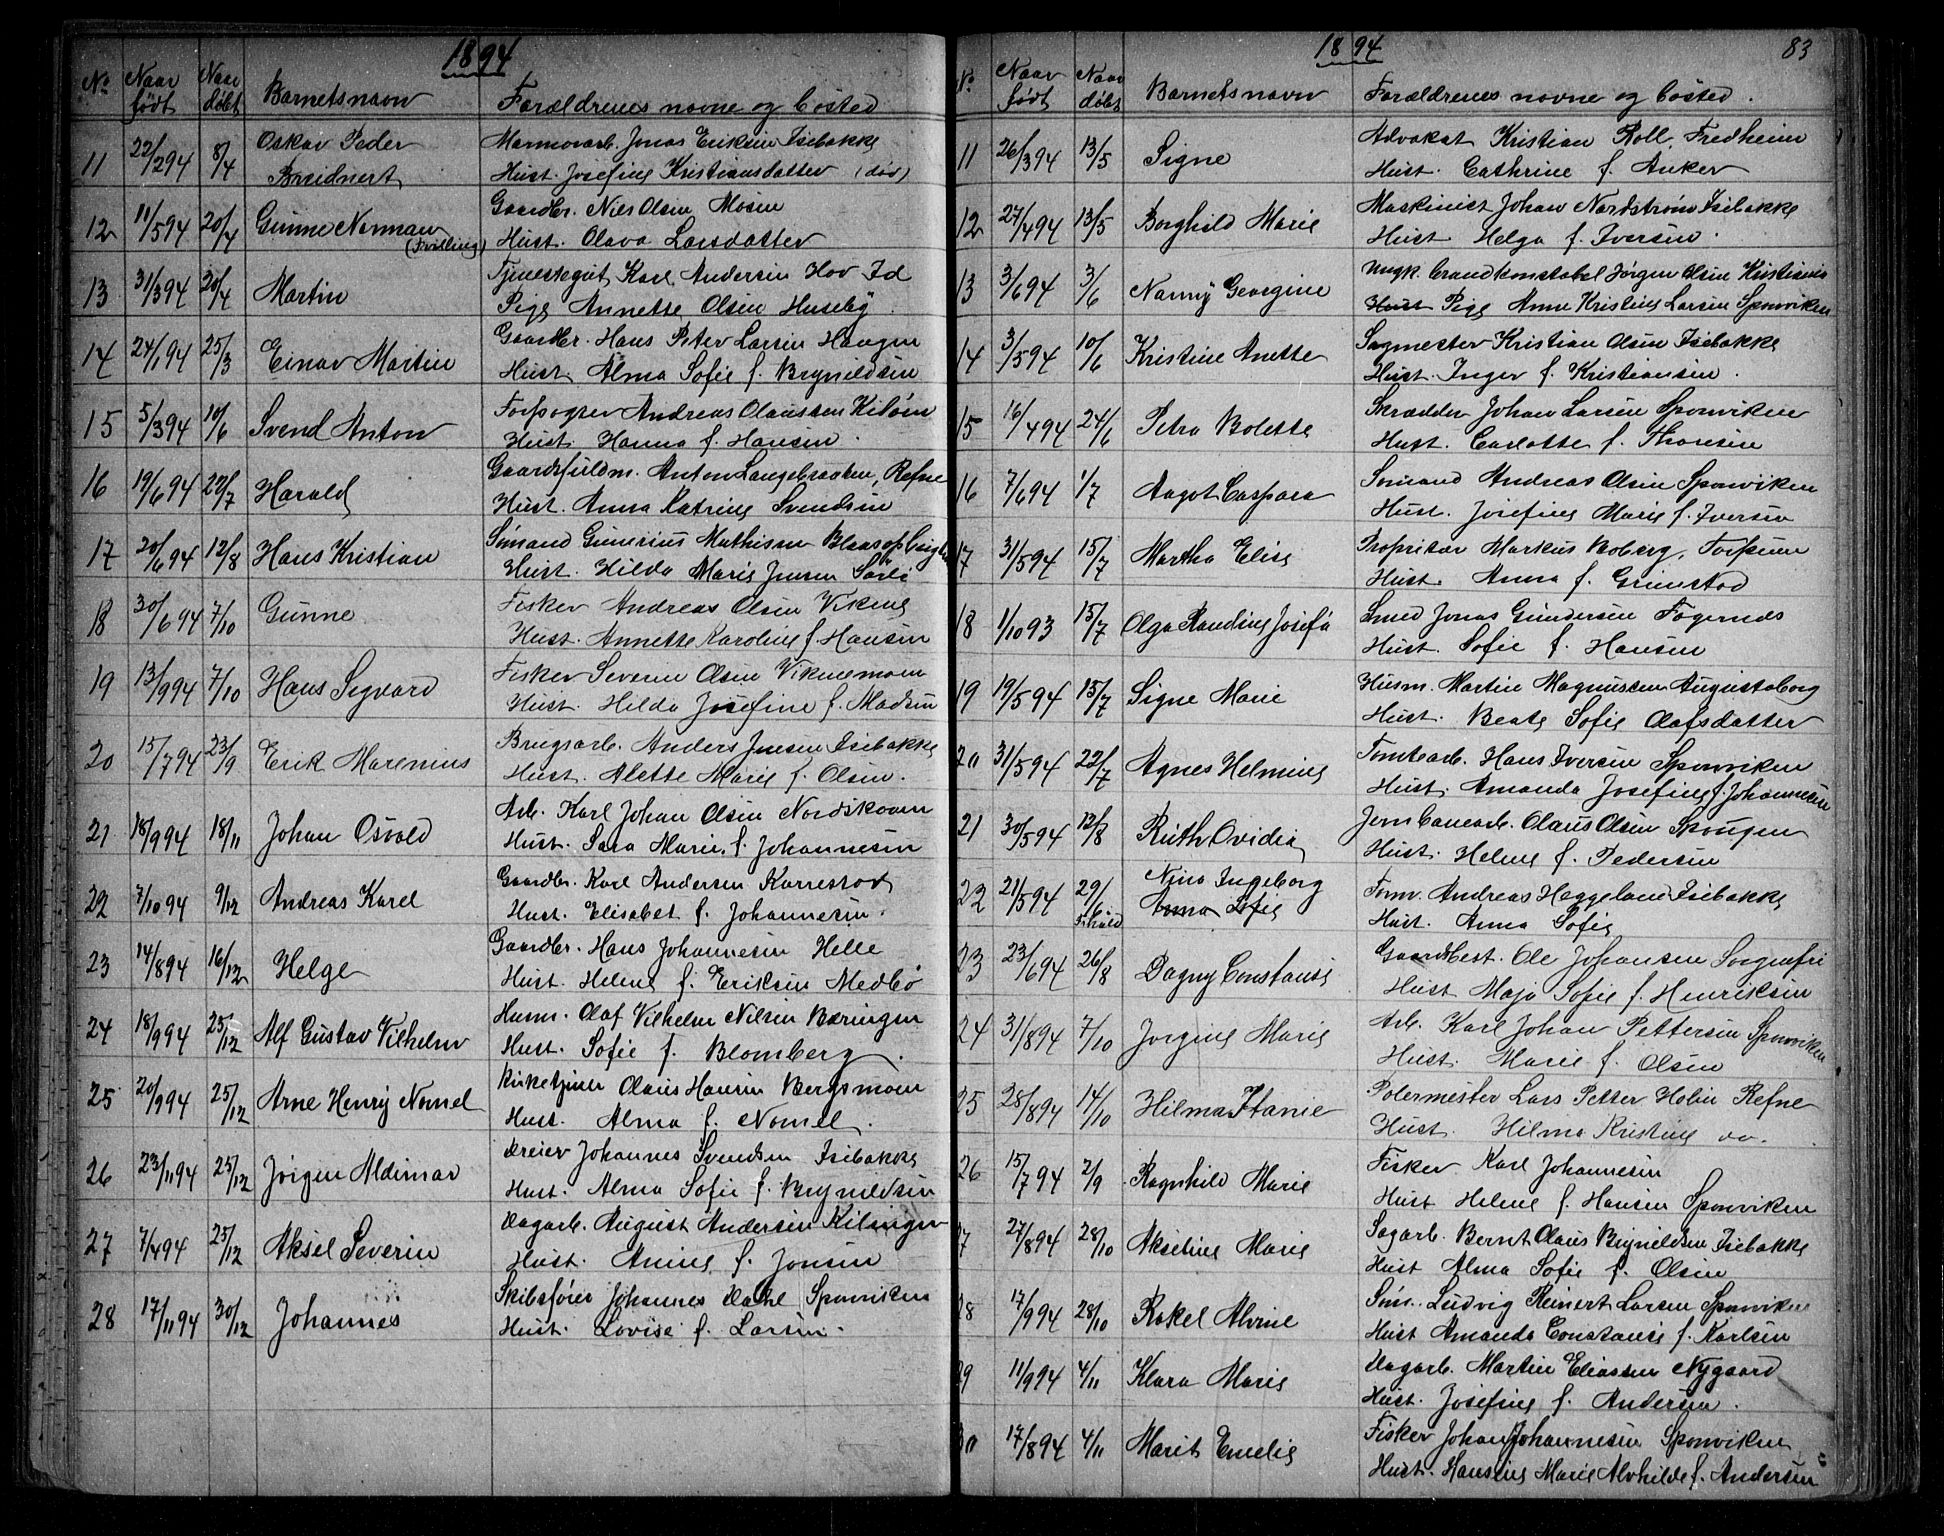 1894
No Naar født Naar døbt Barnetsnavn Forældrenes navne og bosted
11 22/2 94 8/4 Oskar Peder Marmorarb. Jonas Eriksen Isebakke
Hust. Josefine Kristiansdatter (død)
12 11/5 94 20/4 Gunne Norman Gaardbr. Niels Olsen Mosen
(Tvilling) Hust. Olava Larsdatter
13 31/3 94 20/4 Martin Tjenestegut Karl Andersen Hov Id
Pige Annette Olsen Huseby
14 24/1 94 25/3 Einar Martin Gaardbr. Hans Peter Larsen Haugen
Hust. Alma Sofie f. Brynildsen
15 5/3 94 10/6 Svend Anton Forpagter Andreas Claussen
Hust. Hanna f. Hansen
16 19/6 94 22/7 Harald Gaardsfuldm. Anton Langebraaten, Refne
Hust. Anna Katrine Svendsen
17 20/6 94 12/8 Hans Kristian Sømand Gunerius Mathisen
Hust. Hilda Marie Jensen
18 30/6 94 7/10 Gunne Fisker Andreas Olsen Vikene
Hust. Annette Karoline f. Hansen
19 13/9 94 7/10 Hans Sigvard Fisker Severin Olsen Vikenemoen
Hust. Hilda Josefine f. Madsen
20 15/7 94 23/9 Erik Marenius Brugsarb. Anders Jensen Isebakke
Hust. Alette Marie f. Olsen.
21 18/9 94 18/11 Johan Osvald Arb. Karl Johan Olsen Nordskoven
Hust. Sara Marie f. Johannesen
22 7/10 94 9/12 Andreas Karel Gaardbr. Karl Andersen Karrestad
Hust. Elisabet f. Johannesen.
23 14/8 94 16/12 Helge Gaardbr. Hans Johannesen Helle
Hust. Helene f. Eriksen Medbø
24 18/9 94 25/12 Alf Gustav Vilhelm Husm. Olaf Vilhelm Nilsen Bæringen
Hust. Sofie f. Blomberg.
25 20/9 94 25/12 Arne Henry Nomel Kirketjener Claus Hansen Bergsmoen
Hust. Alma f. Nomel.
26 23/11 94 25/12 Jørgen Aldimar Dreier Johannes Svendsen Isebakke
Hust. Alma Sofie f. Brynildsen
27 7/4 94 25/12 Aksel Severin Dagarb. August Andersen
Hust. Anine f. Jonsen
28 17/11 94 30/12 Johannes Skibsfører Johannes Dahl Sponviken
Hust. Lovise f. Larsen.
1894 83
No Naar født Naar døbt Barnetsnavn Forældrenes navne og bosted.
11 26/3 94 13/5 Signe Advokat Kristian Roll, Fredheim
Hust. Cathrine f. Anker
12 27/4 94 13/5 Borghild Marie Maskinist Johan Nordstrøm Isebakke
Hust Helga f. Iversen.
13 3/6 94 3/6 Nanny Georgine Ungk. brandkonstabel Jørgen Olsen Kristiania
Hust Pige Anne Kristine Larsen Sponviken
14 3/5 94 10/6 Kristine Anette Sagmester Kristian Olsen Isebakke
Hust. Inger f. Kristiansen.
15 16/4 94 24/6 Petra Bolette Skrædder Johan Larsen Sponviken
Hust. Carlotte f. Thorsen
16 7/6 94 1/7 Aagot Caspara Sømand Andreas Olsen Sponviken
Hust. Josefine Marie f. Iversen
17 31/5 94 15/7 Martha Elise Proprietær Markus Boberg, Torpum
Hust. Anna f. Grimstad
18 1/10 93 15/7 Olga Randine Josefa Smed Jonas Gundersen Fagernes
Hust. Sofie f. Hansen
19 19/5 94 15/7 Signe Marie Husm. Martin Magnussen Augustaborg
Hust. Beate Sofie Olafsdatter
20 31/5 94 22/7 Agnes Helmine Tomtearb. Hans Iversen Sponviken
Hust. Amanda Josefine f. Johannesen
21 30/5 94 12/8 Ruth Ovidia Jernbanearb. Olaus Olsen Skougen
Hust. Helene f. Pedersen
22 21/5 94 29/6 Nina Ingeborg Form. Andreas Heggelund Isebakke
Anna Sofie Hust. Anna Sofie
23 23/6 94 26/8 Dagny Constanse Gaardbest. Ole Johansen Sorgenfri
Hust Maja Sofie f. Henriksen
24 31/8 94 7/10 Jørgine Marie Arb. Karl Johan Pettersen Sponviken
Hust. Marie f. Olsen
25 28/8 94 14/10 Hilma Polermester Lars Petter Holm Refne
Hust. Hilma Kristine do.
26 15/7 94 2/9 Ragnhild Marie Fisker Karl Johannesen
Hust Helene f. Hansen Sponviken
27 27/8 94 28/10 Akseline Marie Sagarb. Bernt Claus Brynildsen Isebakke
Hust Alma Sofie f. Olsen
28 17/9 94 28/10 Rakel Alvine Søm. Ludvig Reinert Larsen Sponviken
Hust Amanda Constanse f. Karlsen
29 11/9 94 4/11 Klara Marie Dagarb. Martin Eliassen Nygaard
Hust. Josefine f. Andersen.
30 17/8 94 4/11 Marit Emelie Fisker Johan Johannesen Sponviken
Hust. Hansine Marie Alvhilde f. Andersen